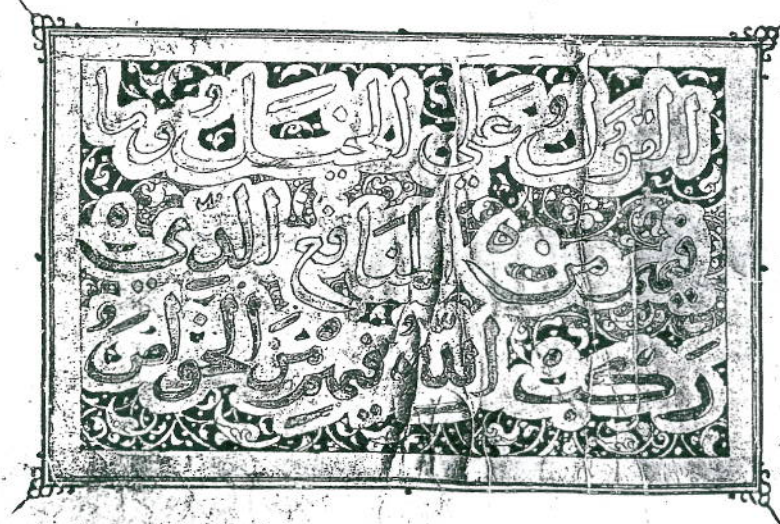 القول على الخيل وما
فيهن من المنافع الذي
ركب الله فيهن من الخواص